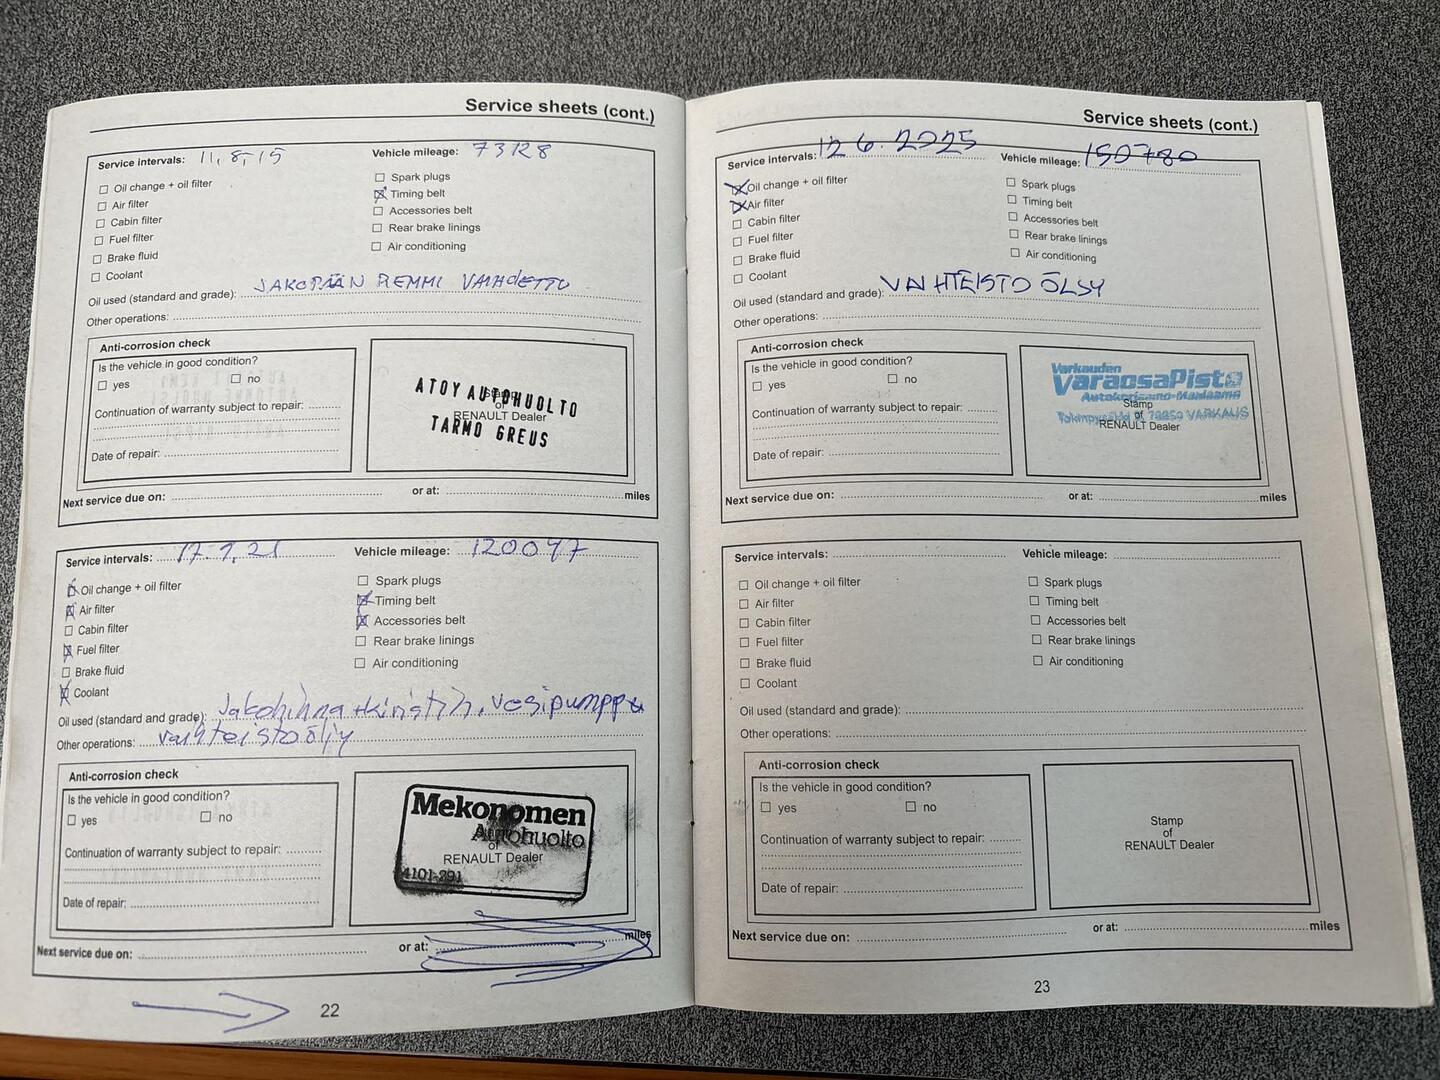 Service sheets (cont.)
Service intervals: 11,8,15 Vehicle mileage: 73128
Oil change + oil filter
Air filter
Cabin filter
Fuel filter
Brake fluid
Coolant
Spark plugs
Timing belt
Accessories belt
Rear brake linings
Air conditioning
Oil used (standard and grade): JAKOPÄÄN REMMI VAIHDETTU
Other operations:
Anti-corrosion check
Is the vehicle in good condition?
yes no
Continuation of warranty subject to repair:
Date of repair:
ATOY AUTOHUOLTO
Stamp
of
RENAULT Dealer
TARMO GREUS
Next service due on: or at: miles
Service intervals: 17.9.21 Vehicle mileage: 120097
Oil change + oil filter
Air filter
Cabin filter
Fuel filter
Brake fluid
Coolant
Spark plugs
Timing belt
Accessories belt
Rear brake linings
Air conditioning
Oil used (standard and grade): Jakohihna+kiristin, vesipumppu
Other operations: vaihteistoöljy
Anti-corrosion check
Is the vehicle in good condition?
yes no
Continuation of warranty subject to repair:
Date of repair:
Mekonomen
Autohuolto
of
RENAULT Dealer
4101-291
Next service due on: or at: miles
22
Service sheets (cont.)
Service intervals: 12.6.2025 Vehicle mileage: 150780
Oil change + oil filter
Air filter
Cabin filter
Fuel filter
Brake fluid
Coolant
Spark plugs
Timing belt
Accessories belt
Rear brake linings
Air conditioning
Oil used (standard and grade): VAIHTEISTO ÖLJY
Other operations:
Anti-corrosion check
Is the vehicle in good condition?
yes no
Continuation of warranty subject to repair:
Date of repair:
Varkauden
VaraosaPiste
Autokorjaamo-Maalaamo
Stamp
of
78250 VARKAUS
RENAULT Dealer
Next service due on: or at: miles
Service intervals: Vehicle mileage:
Oil change + oil filter
Air filter
Cabin filter
Fuel filter
Brake fluid
Coolant
Spark plugs
Timing belt
Accessories belt
Rear brake linings
Air conditioning
Oil used (standard and grade):
Other operations:
Anti-corrosion check
Is the vehicle in good condition?
yes no
Continuation of warranty subject to repair:
Date of repair:
Stamp
of
RENAULT Dealer
Next service due on: or at: miles
23